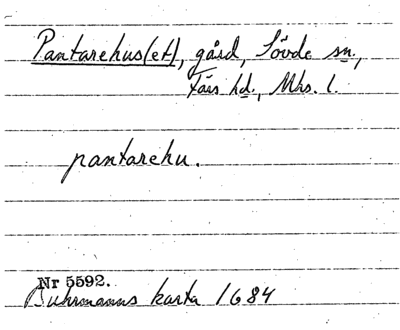 Pantarehus(et), gård, Sövde sn.,
Färs hd., Mhs. l.
pantarehu.
Nr 5592.
Buhrmanns karta 1684